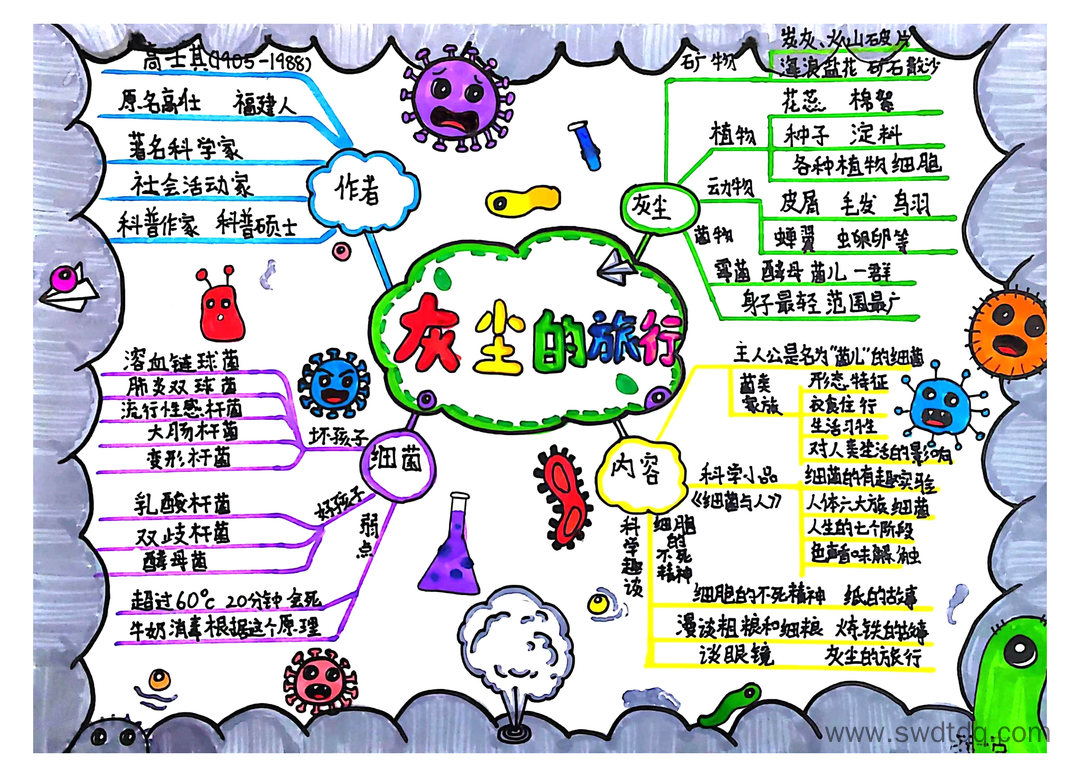 灰尘的旅行
作者
高士其(1905-1988)
原名高仕 福建人
著名科学家
社会活动家
科普作家 科普硕士
灰尘
矿物
炭灰、火山碎片
海浪盐花 矿石散沙
植物
花蕊 棉絮
种子 淀料
各种植物细胞
动物
皮屑 毛发 鸟羽
蝉翼 虫卵卵等
菌物
霉菌 酵母 菌儿 一群
身子最轻 范围最广
细菌
坏孩子
溶血链球菌
肺炎双球菌
流行性感杆菌
大肠杆菌
变形杆菌
好孩子
乳酸杆菌
双歧杆菌
酵母菌
弱点
超过60°c 20分钟会死
牛奶消毒根据这个原理
内容
主人公是名为“菌儿”的细菌
菌类
家族
形态特征
衣食住行
生活习性
对人类生活的影响
科学小品
《细菌与人》
细菌的有趣实验
人体六大族细菌
人生的七个阶段
色声香味触
科学趣谈
细胞
的
不死
精神
细胞的不死精神 纸的故事
漫谈粗粮和细粮 炼铁的故事
谈眼镜 灰尘的旅行
www.swdtdq.com